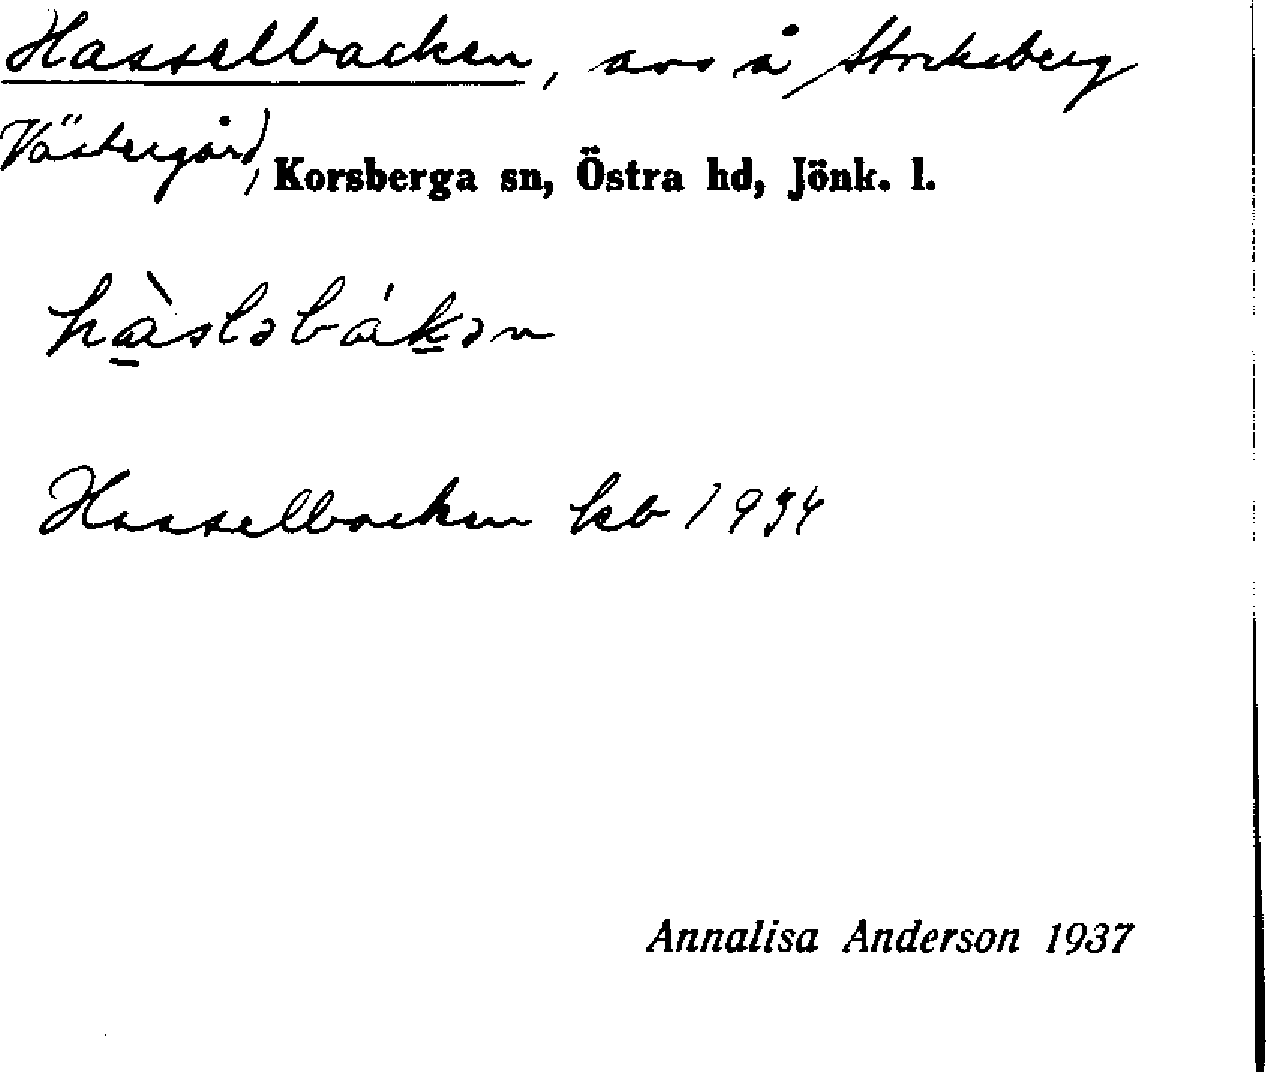 Hasselbacken, avs å Stockeberg
Västergård, Korsberga sn, Östra hd, Jönk. l.
hàsləbákən
Hasselbacken kb 1934
Annalisa Anderson 1937